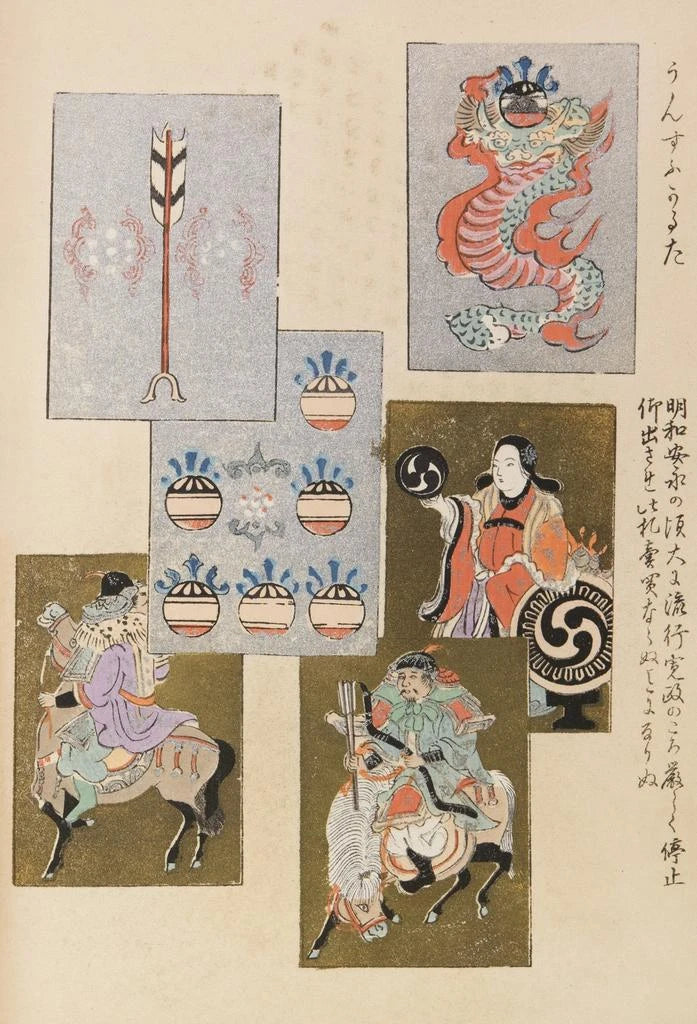 うんすふかるた
明和安永の頃大に流行寛政のころ厳しく停止
仰出され此札売買ならぬことになりぬ